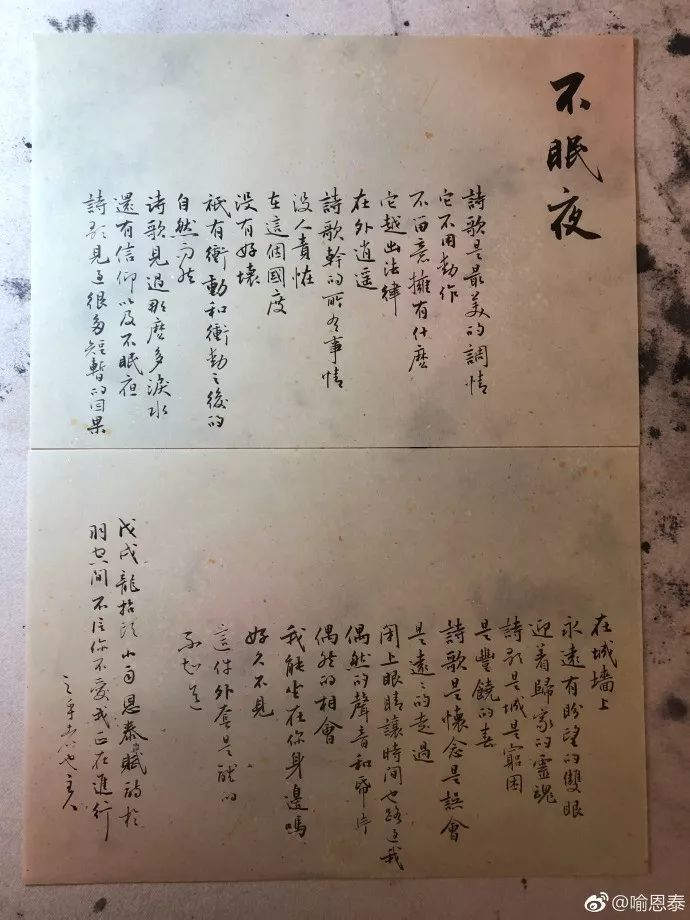 不眠夜
詩歌是最美的調情
它不用動作
不百意擁有什麽
它越出法律
在外逍遥
詩歌幹的所有事情
没人責怪
在這個國度
没有好壞
祇有衝動和衝動之後的
自然而然
诗歌見過那麽多淚水
還有信仰以及不眠夜
詩歌見過很多短暫的因果
在城墙上
永遠有盼望的雙眼
迎着歸家的靈魂
詩歌是城是窮困
是豐饒的春
詩歌是懷念是誤會
是遠遠的走過
閉上眼睛讓時間也路過我
偶然的聲音和
偶然的相會
我能坐在你身邊嗎
好久不見
這件外套是誰的
不知道
戊戌龍抬頭小雨恩泰賦詩於
羽空間不信你不愛我正在進行
主人
@喻恩泰